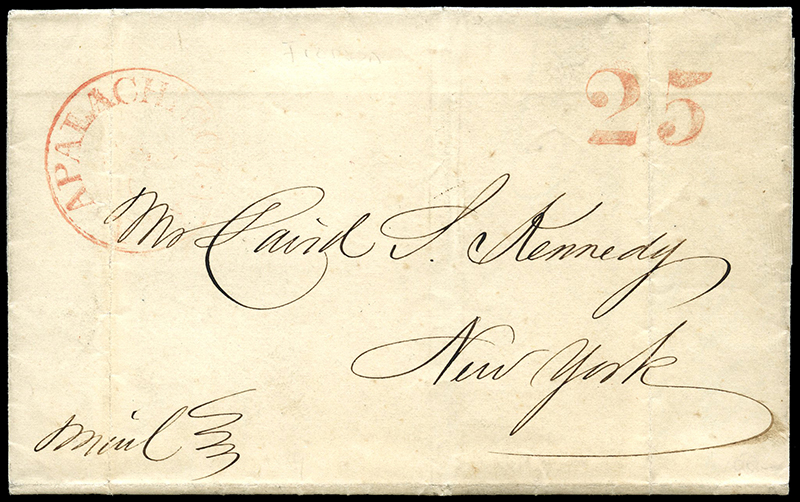 APALACHICO
25
Mr Caird S. Kennedy
New York
Mail